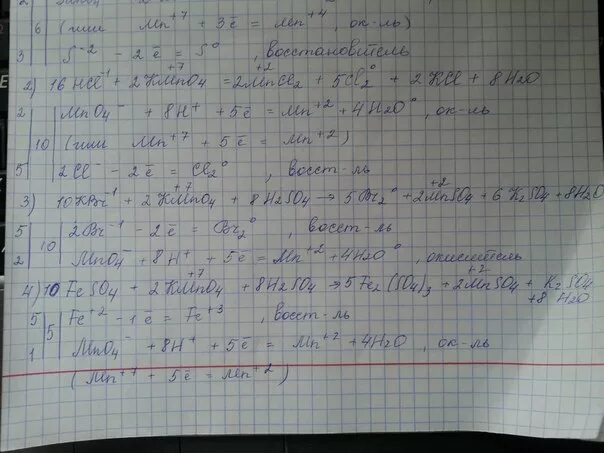 6 (или Mn⁺⁷ + 3ē = Mn⁺⁴, ок-ль)
3 S⁻² − 2ē = S⁰, восстановитель
2) 16 HCl⁻¹ + 2KMn⁺⁷O4 = 2Mn⁺²Cl2 + 5Cl2⁰ + 2KCl + 8H2O
2 MnO4⁻ + 8H⁺ + 5ē = Mn⁺² + 4H2O⁰, ок-ль
10 (или Mn⁺⁷ + 5ē = Mn⁺²)
5 2Cl⁻ − 2ē = Cl2⁰, восст-ль
3) 10KBr⁻¹ + 2KMn⁺⁷O4 + 8H2SO4 → 5Br2⁰ + 2Mn⁺²SO4 + 6K2SO4 + 8H2O
5 10 2Br⁻¹ − 2ē = Br2⁰, восст-ль
2 MnO4⁻ + 8H⁺ + 5ē = Mn⁺² + 4H2O⁰, окислитель
4) 10 FeSO4 + 2KMn⁺⁷O4 + 8H2SO4 → 5Fe2(SO4)3 + 2Mn⁺²SO4 + K2SO4
+8H2O
5 5 Fe⁺² − 1ē = Fe⁺³, восст-ль
1 MnO4⁻ + 8H⁺ + 5ē = Mn⁺² + 4H2O, ок-ль
(Mn⁺⁷ + 5ē = Mn⁺²)